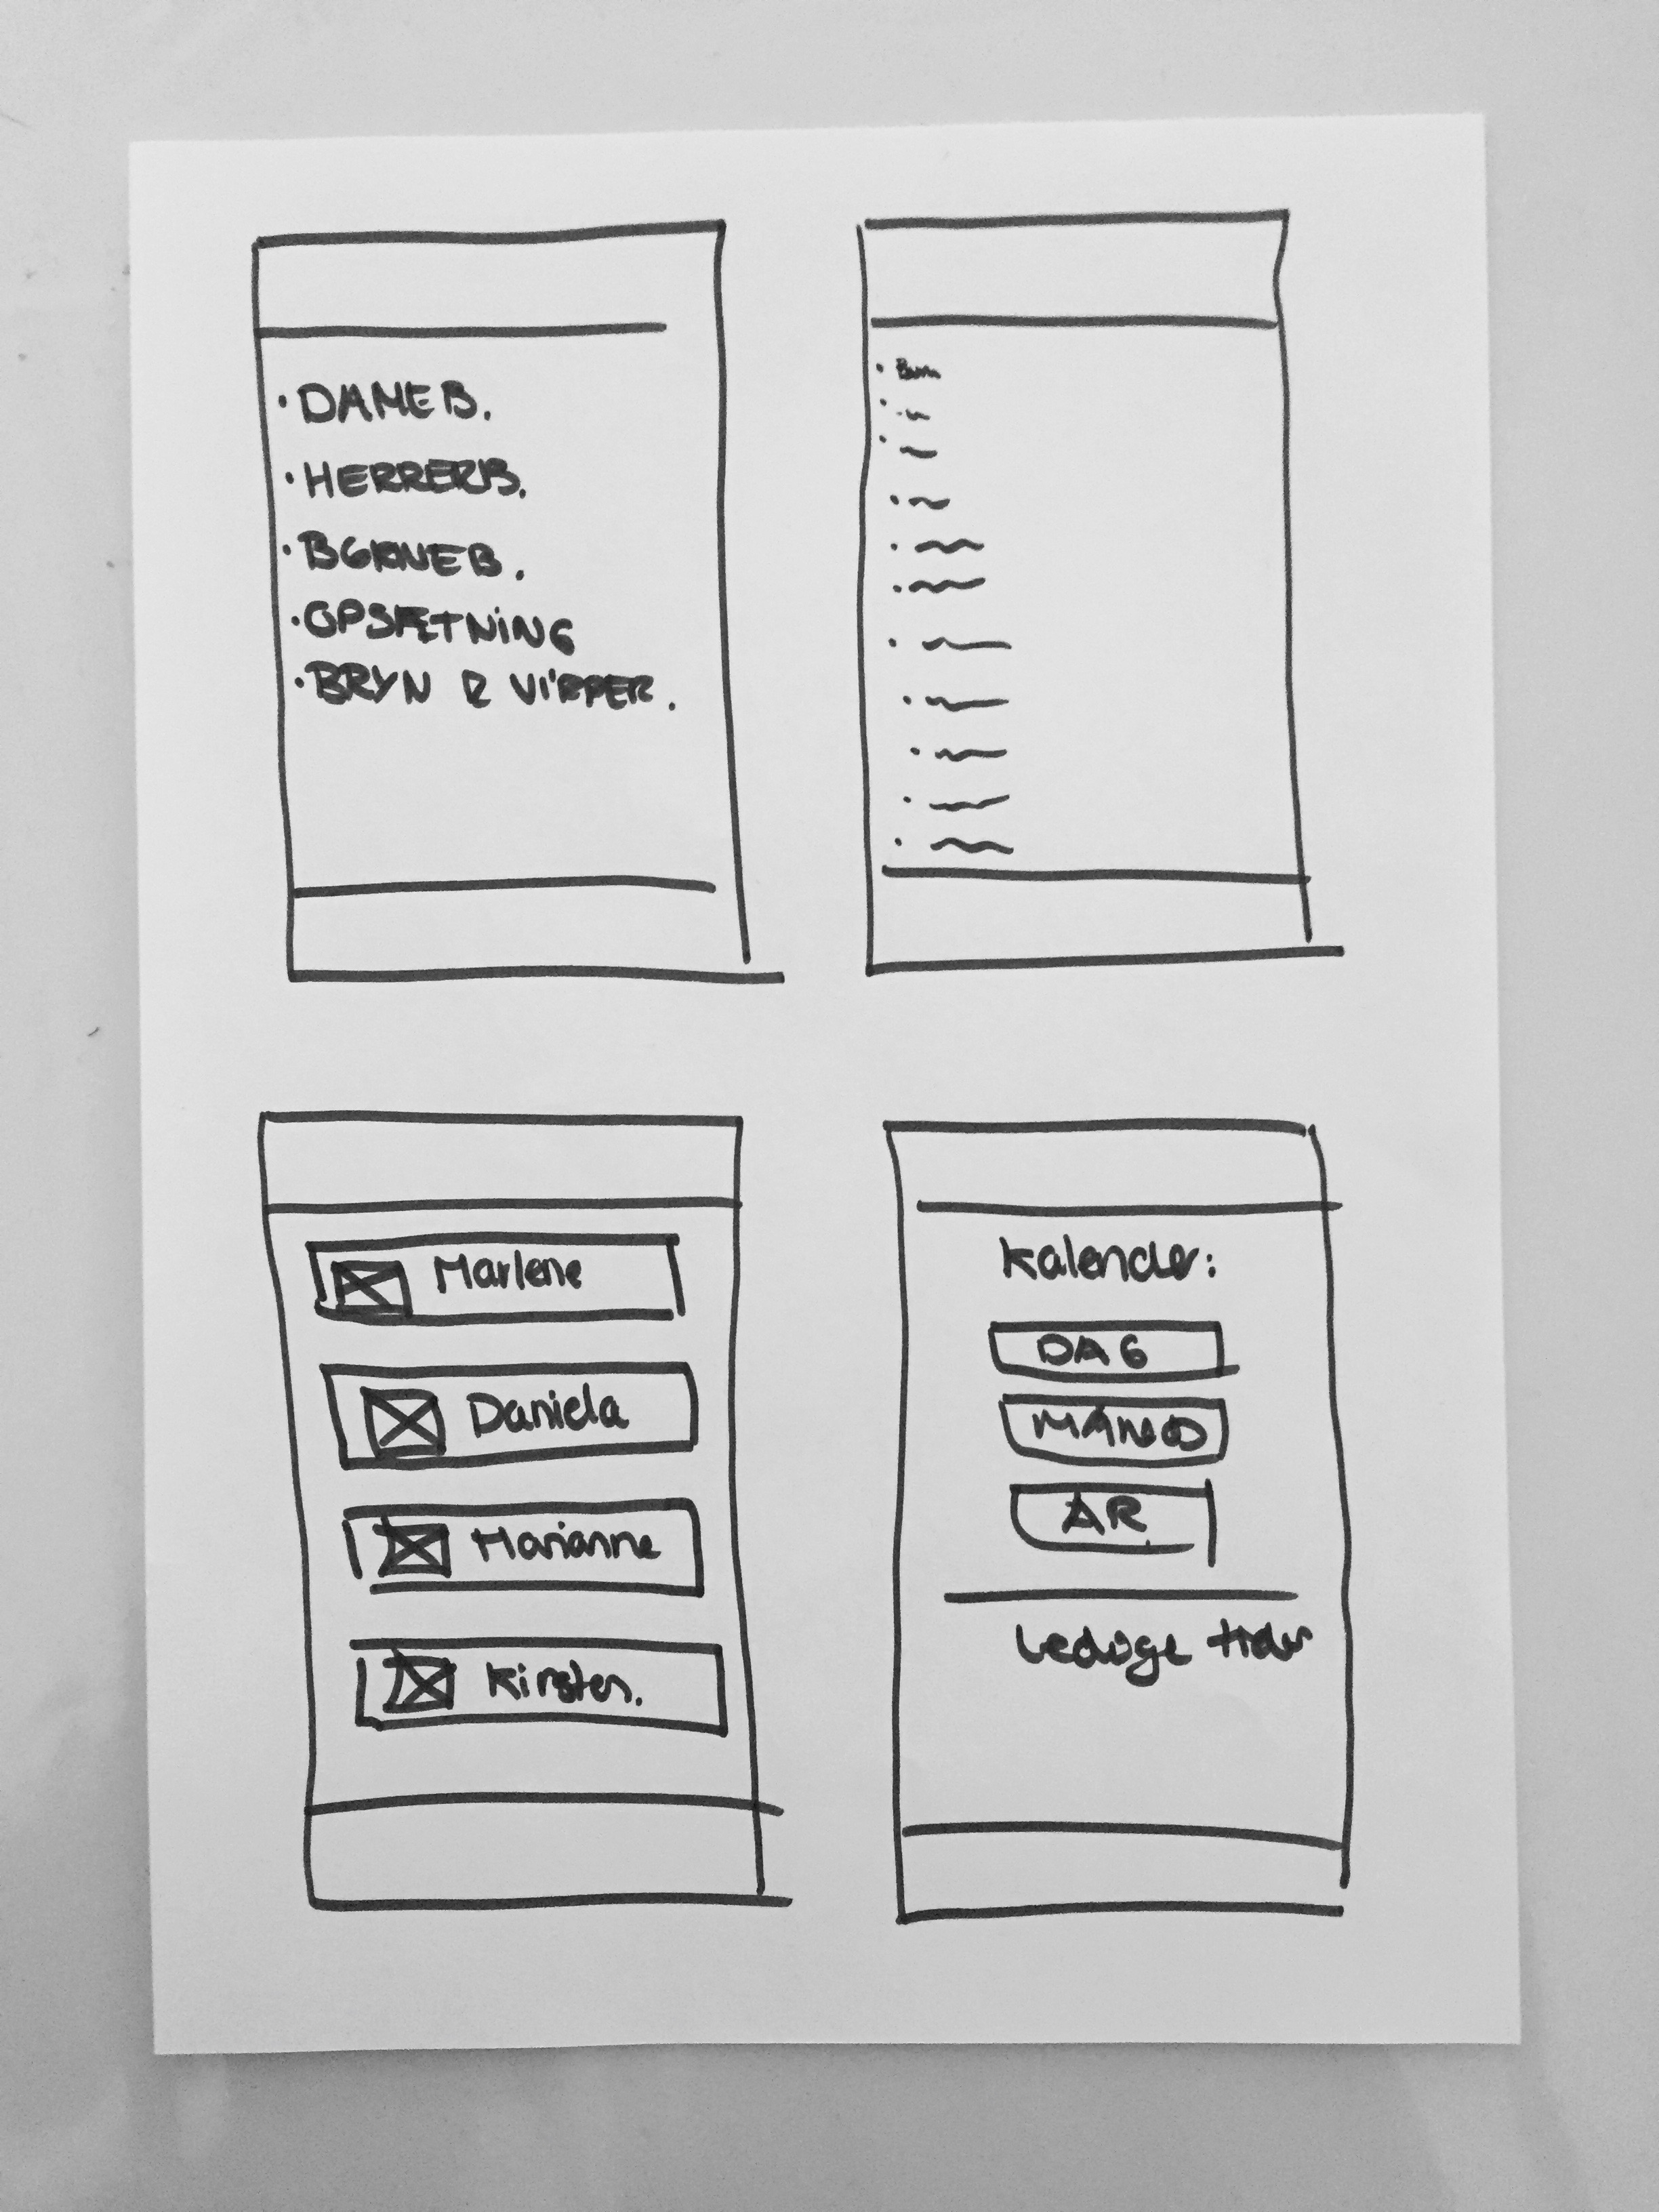 • DAMEB.
• HERRERB.
• BØRNEB.
• OPSÆTNING
• BRYN & VIPPER.
Marlene
Daniela
Marianne
Kirsten.
Kalender:
DAG
MÅNED
ÅR
Ledige tider